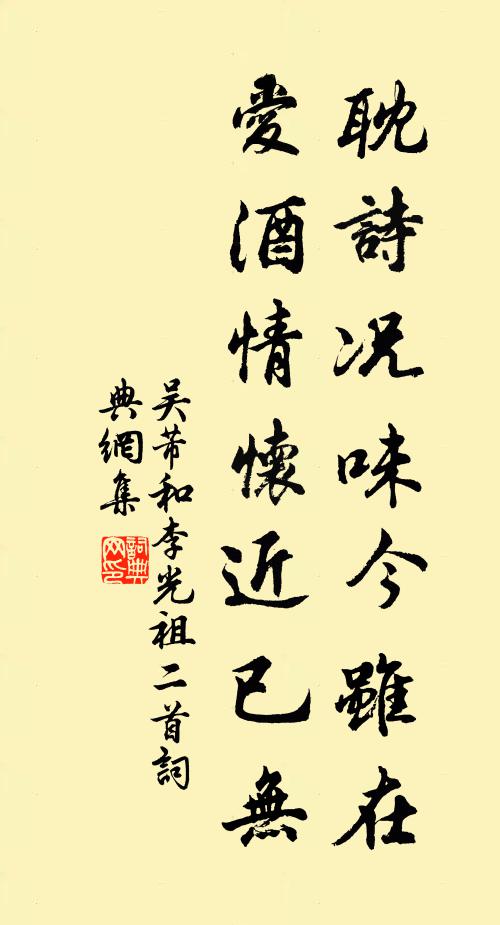 耽詩況味今雖在
愛酒情懷近已無
吴芾和李光祖二首詞
典網集
詞典
网印